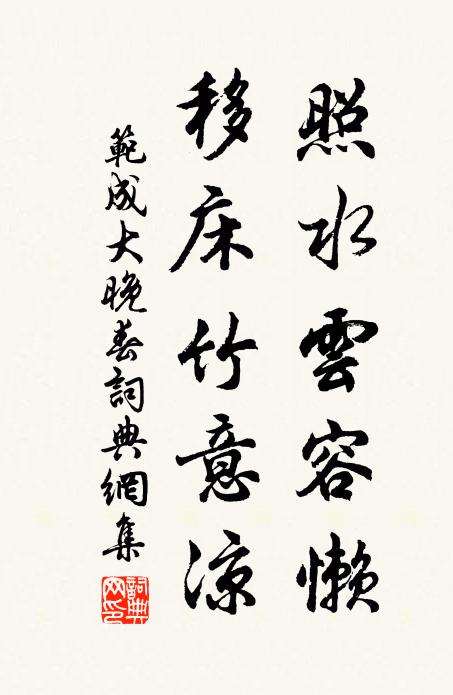 照水雲容懶
移床竹意涼
範成大晚春詞典網集
詞典網印